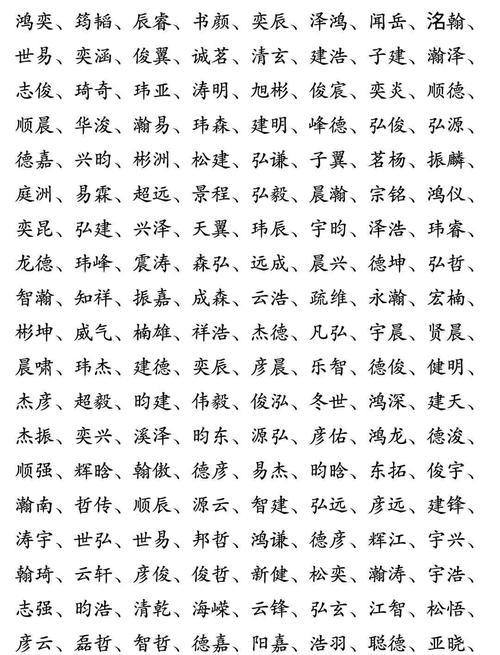 鸿奕、筠韬、辰睿、书颜、奕辰、泽鸿、闻岳、洺翰、
世易、奕涵、俊翼、诚茗、清玄、建浩、子建、瀚泽、
志俊、琦奇、玮亚、涛明、旭彬、俊宸、奕炎、顺德、
顺晨、华浚、瀚易、玮森、建明、峰德、弘俊、弘源、
德嘉、兴昀、彬洲、松建、弘谦、子翼、茗杨、振麟、
庭洲、易霖、超远、景程、弘毅、晨瀚、宗铭、鸿仪、
奕昆、弘建、兴泽、天翼、玮辰、宇昀、泽浩、玮睿、
龙德、玮峰、震涛、森弘、远成、晨兴、德坤、弘哲、
智瀚、知祥、振嘉、成森、云浩、疏维、永瀚、宏楠、
彬坤、威气、楠雄、祥浩、杰德、凡弘、宇晨、贤晨、
晨啸、玮杰、建德、奕辰、彦晨、乐智、德俊、健明、
杰彦、超毅、昀建、伟毅、俊泓、冬世、鸿深、建天、
杰振、奕兴、溪泽、昀东、源弘、彦佑、鸿龙、德浚、
顺强、辉晗、翰傲、德彦、易杰、昀晗、东拓、俊宇、
瀚南、哲传、顺辰、源云、智建、弘远、彦远、建锋、
涛宇、世弘、世易、邦哲、鸿谦、德彦、辉江、宇兴、
翰琦、云轩、彦俊、俊哲、新健、松奕、瀚涛、宇浩、
志强、昀浩、清乾、海嵘、云锋、弘玄、江智、松悟、
彦云、磊哲、智哲、德嘉、阳嘉、浩羽、聪德、亚晓、